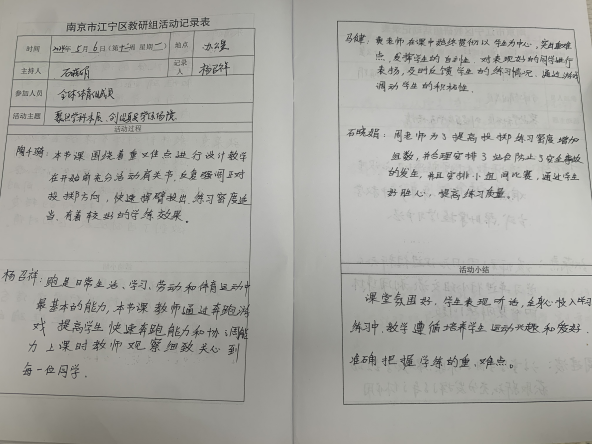 南京市江宁区教研组活动记录表
时间 5月6日(第十二周 星期二) 地点 办公室
主持人 石晓娟 记录人 杨召祥
参加人员 全体体育组成员
活动主题
活动过程
本节课围绕着重难点进行设计教学
在开始前充分活动肩关节,反复强调正对
投掷方向,快速挥臂投出,练习密度适
当,有着较好的学练效果。
杨召祥:跑是日常生活、学习、劳动和体育运动中
最基本的能力,本节课教师通过奔跑游
戏 提高学生快速奔跑能力和协调能
力 上课时教师观察细致关心到
每一位同学。
老师在课中熟练贯彻以学生为中心,突出重难
点,发挥学生的自主性,对表现好的同学进行
表扬,及时反馈学生的练习情况,通过游戏
调动学生的积极性。
石晓娟:周老师为了提高投掷练习密度增加
组数,并合理安排了站位防止了安全事故
的发生,并且安排小组间比赛,通过学生
好胜心,提高练习质量。
活动小结
课堂氛围好,学生表现听话,全身心投入学习
练习中,教学遵循培养学生运动兴趣和爱好,
准确把握学练的重、难点。